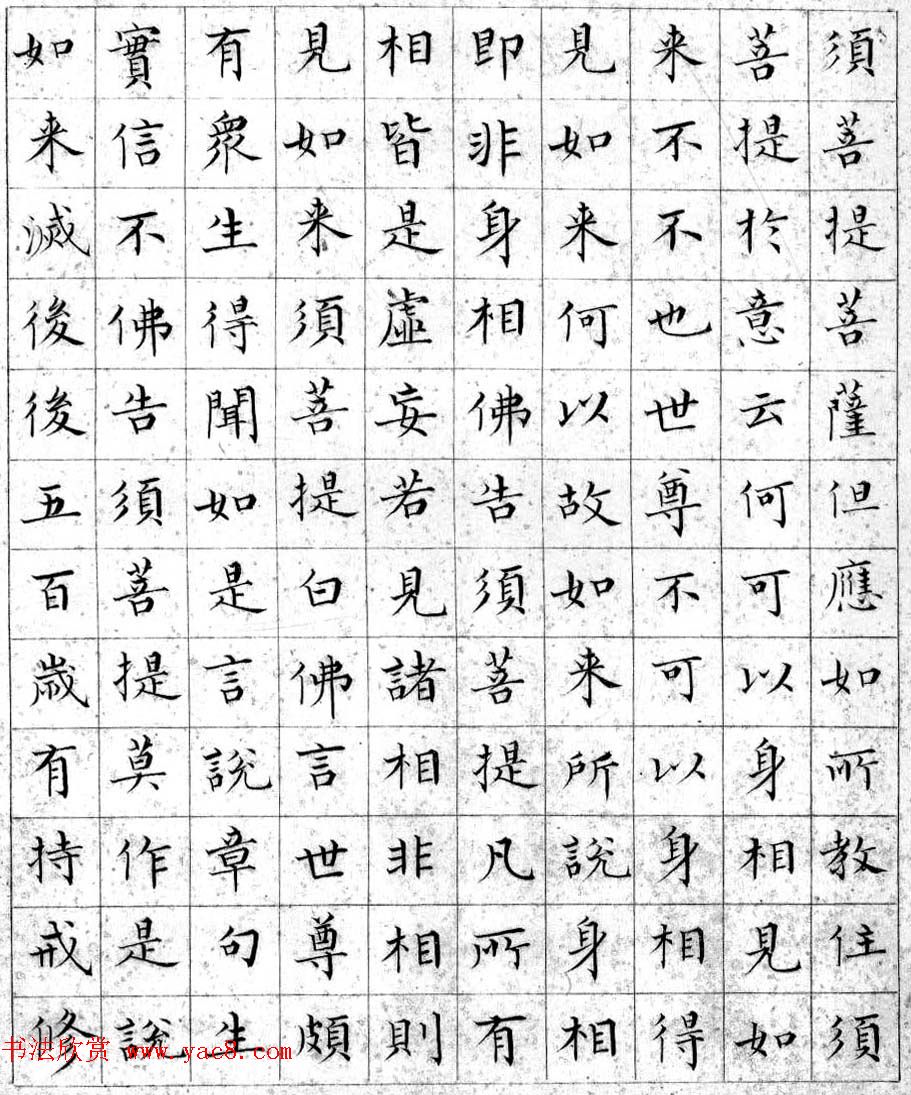 須菩提菩薩但應如所教住須
菩提於意云何可以身相見如
来不不也世尊不可以身相得
見如来何以故如来所說身相
即非身相佛告須菩提凡所有
相皆是虛妄若見諸相非相則
見如来須菩提白佛言世尊頗
有衆生得聞如是言說章句生
實信不佛告須菩提莫作是說
如来滅後後五百歲有持戒修
书法欣赏 www.yac8.com